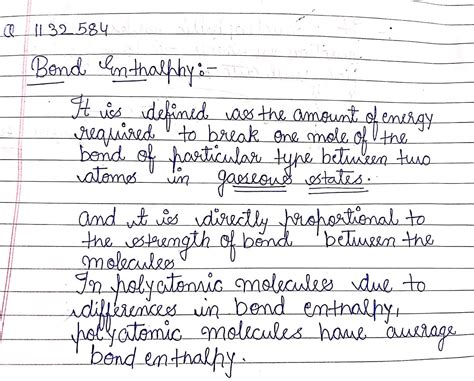 Q 1132584
Bond Enthalphy:-
It is defined as the amount of energy
required to break one mole of the
bond of particular type between two
atoms in gaseous states.
and it is directly proportional to
the strength of bond between the
molecules
In polyatomic molecules due to
differences in bond enthalpy,
polyatomic molecules have average
bond enthalpy.